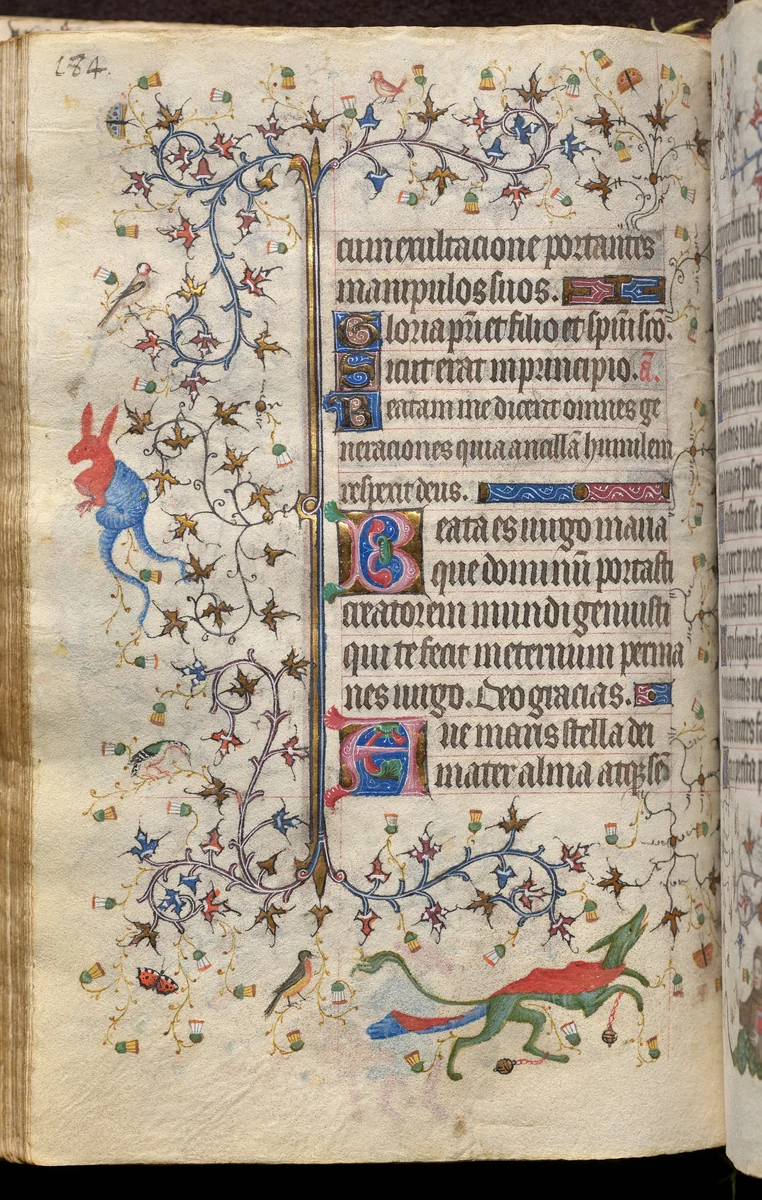 184.
cum exultacione portantes
manipulos suos.
Gloria pr̄i et filio et spūi sc̄o.
Sicut erat in principio. a̅.
Beatam me dicent omnes ge
neraciones quia ancillā humilem
respexit deus.
Beata es uirgo maria
que dominū portasti
creatorem mundi genuisti
qui te fecit in eternum perma
nes uirgo. Deo gracias.
Aue maris stella dei
mater alma atqꝫ sē